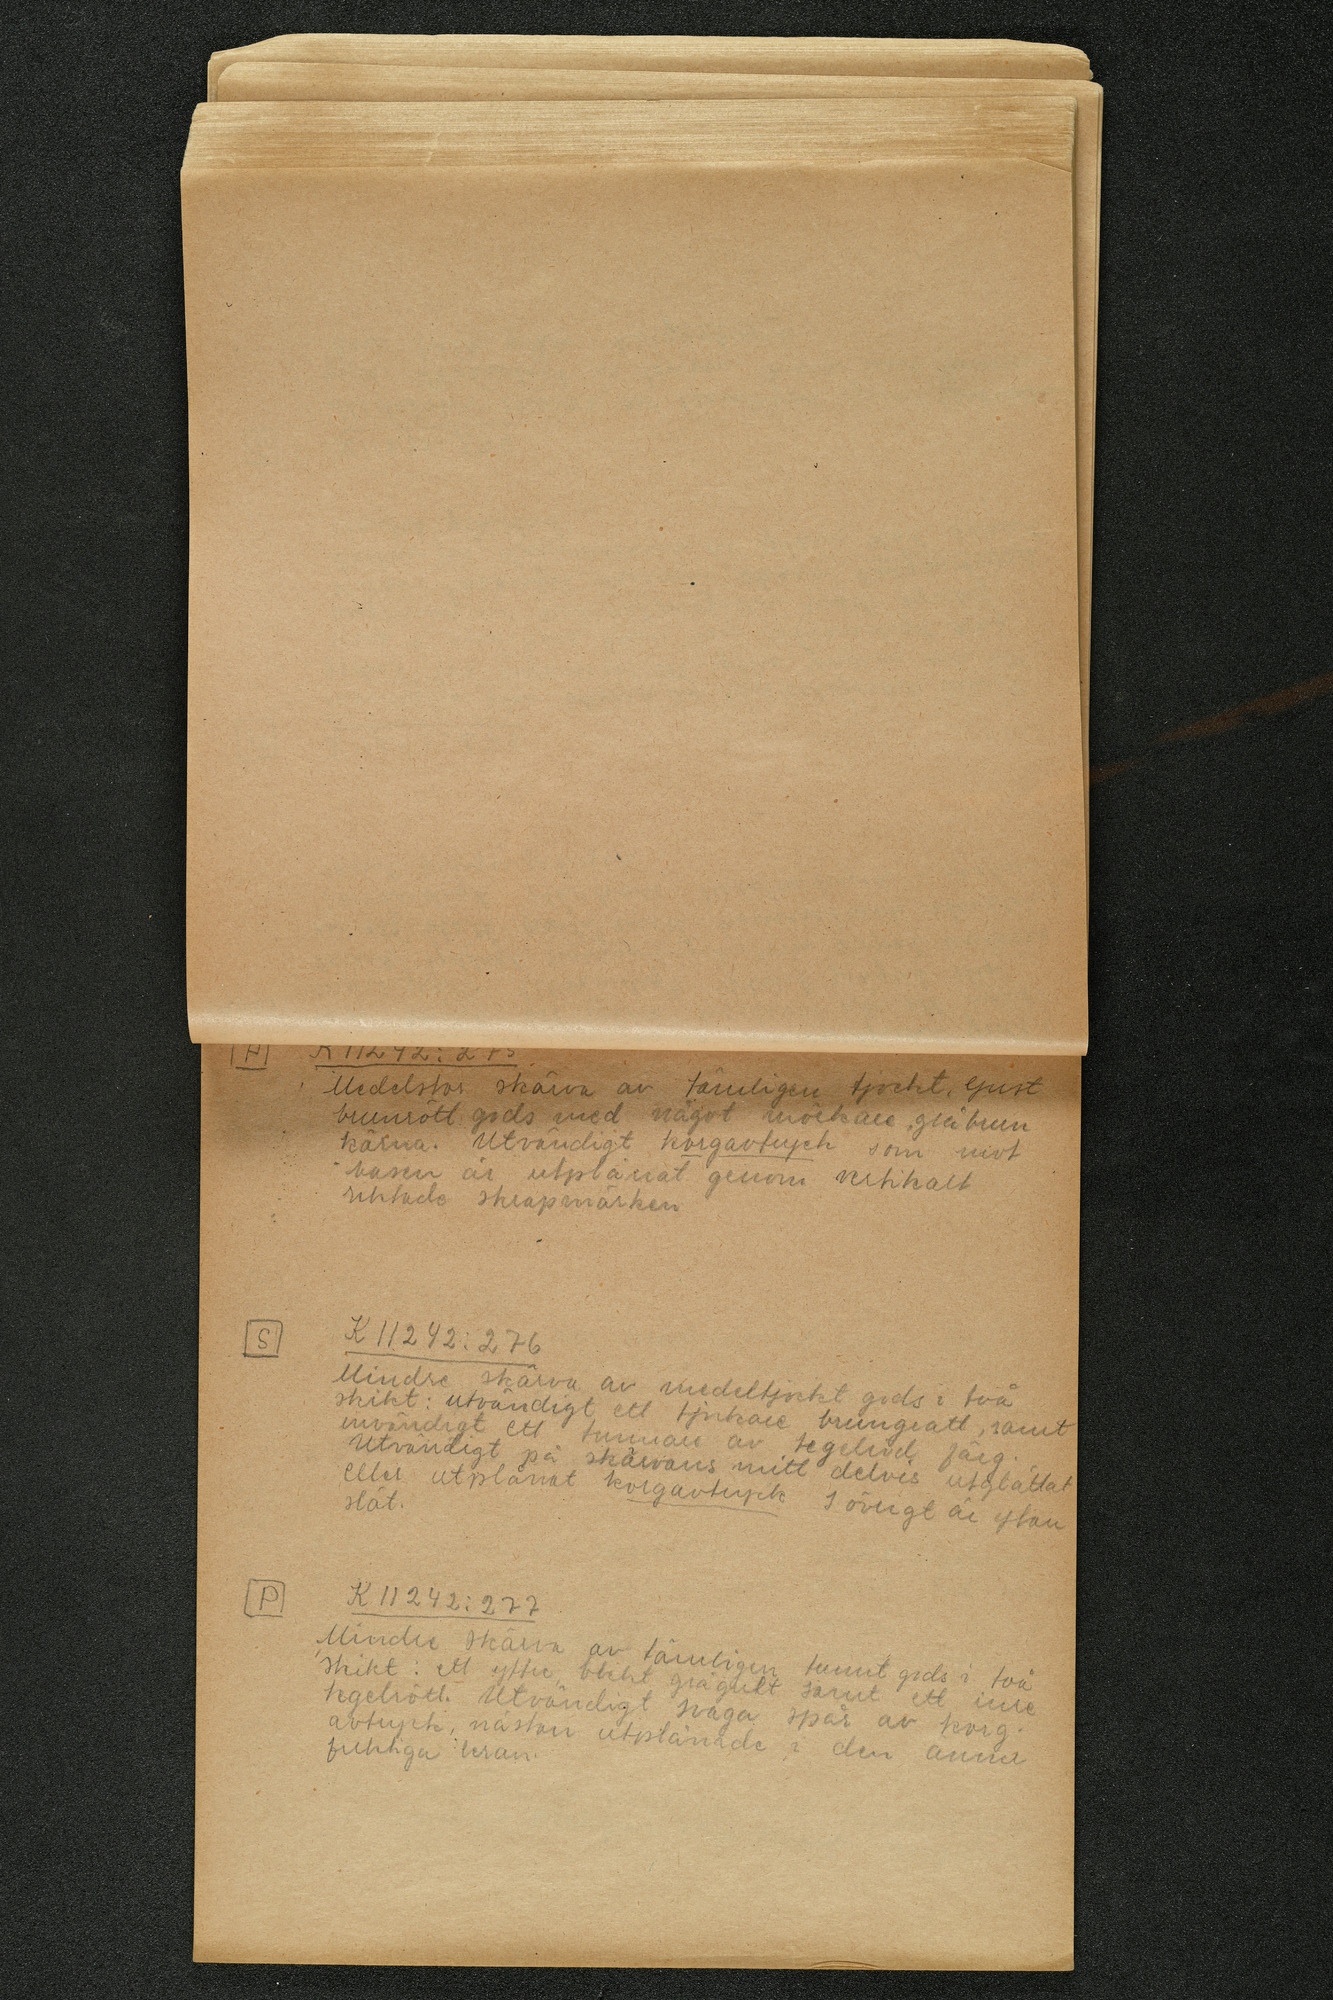 K 11242: 275
Medelstor skärva av tämligen tjockt, ljust
brunrött gods med något mörkare, gråbrun
kärna. Utvändigt korgavtryck som mot
basen är utplånat genom vertikalt
riktade skrapmärken
S K 11242: 276
Mindre skärva av medeltjockt gods i två
skikt: utvändigt ett tjockare brungrått, samt
invändigt ett tunnare av tegelröd färg.
Utvändigt på skärvans mitt delvis utglättat
eller utplånat korgavtryck I övrigt är ytan
slät.
P K 11242: 277
Mindre skärva av tämligen tunnt gods i två
skikt: ett yttre, blekt grågult samt ett inre
tegelrött. Utvändigt svaga spår av korg-
avtryck, nästan utplånade i den annars